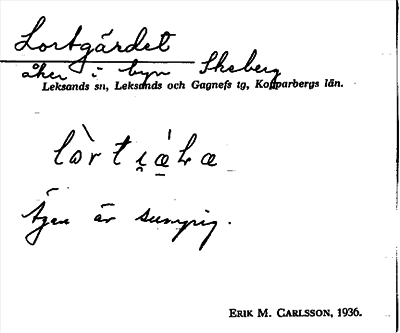 Lortgärdet
åker i byn Skeberg
Leksands sn, Leksands och Gagnefs tg, Kopparbergs län.
är sumpig.
ERIK M. CARLSSON, 1936.